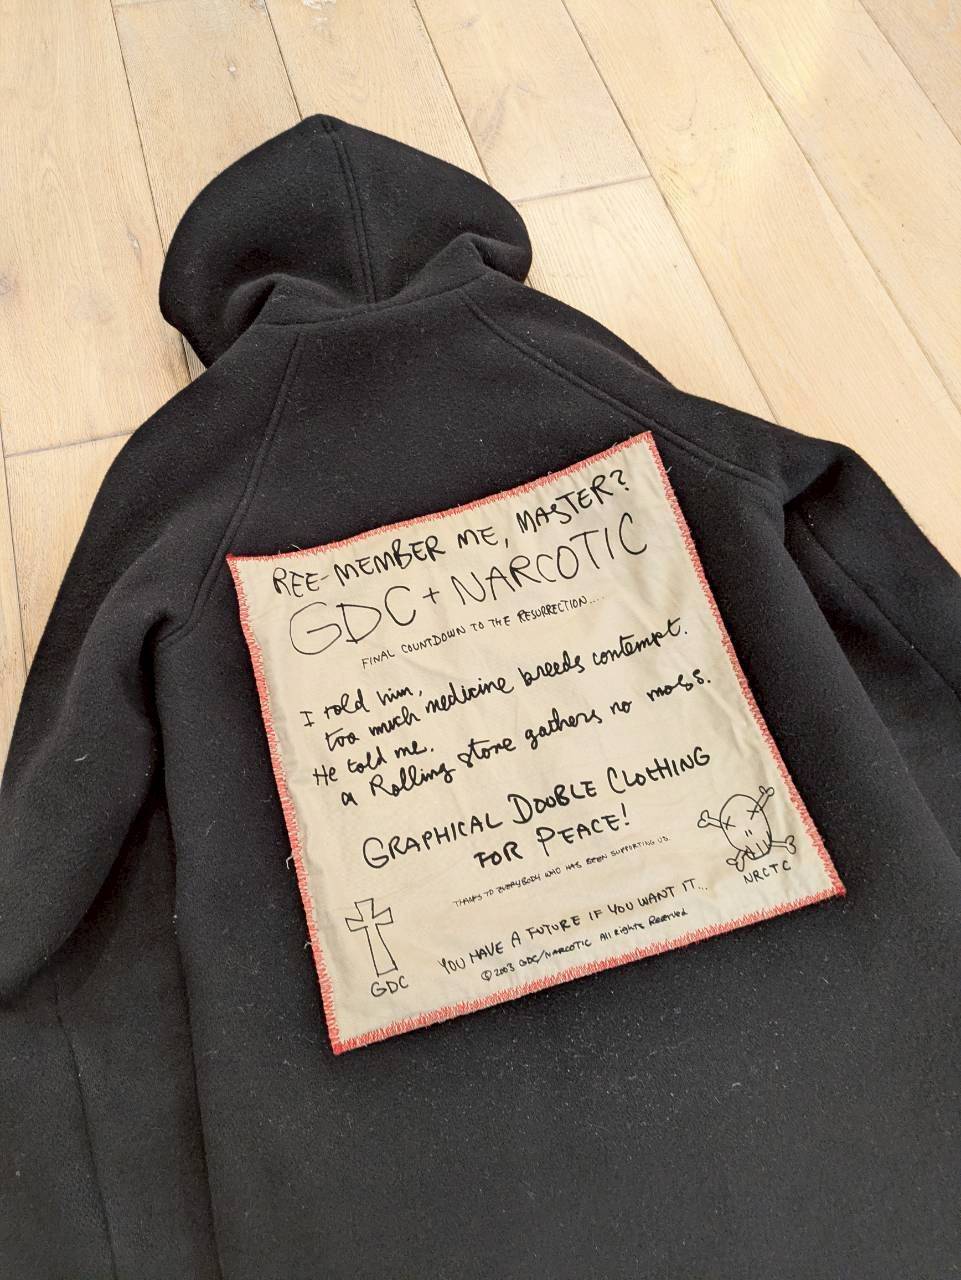 REE-MEMBER ME, MASTER?
GDC + NARCOTIC
FINAL COUNTDOWN TO THE RESURRECTION....
I told him,
too much medicine breeds contempt.
He told me.
a Rolling stone gathers no moss.
GRAPHICAL DOOBLE CLOTHING
FOR PEACE!
THANKS TO EVERYBODY WHO HAS BEEN SUPPORTING US.
NRCTC
YOU HAVE A FUTURE IF YOU WANT IT...
©2003 GDC/NARCOTIC All Rights Reserved
GDC